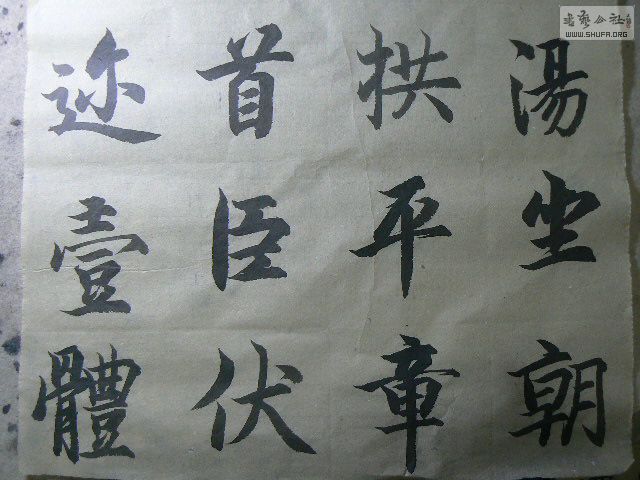 湯坐朝
拱平章
首臣伏
迩壹體
书艺公社
WWW.SHUFA.ORG